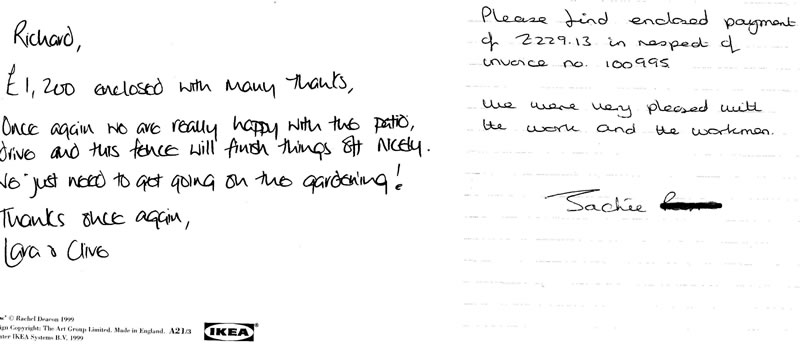 Richard,
£1,200 enclosed with many thanks,
Once again we are really happy with the patio,
drive and this fence will finish things off nicely.
We just need to get going on the gardening!
Thanks once again,
Lara & Clive
© Rachel Deacon 1999
Copyright: The Art Group Limited. Made in England. A21/3
IKEA Systems B.V. 1999
IKEA®
Please find enclosed payment
of £229.13 in respect of
invoice no. 100995
We were very pleased with
the work and the workmen.
Jackie